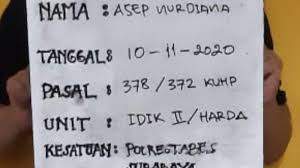 NAMA : ASEP NURDIANA
TANGGAL : 10-11-2020
PASAL : 378 / 372 KUHP
UNIT : IDIK II / HARDA
KESATUAN: POLRESTABES
SURABAYA